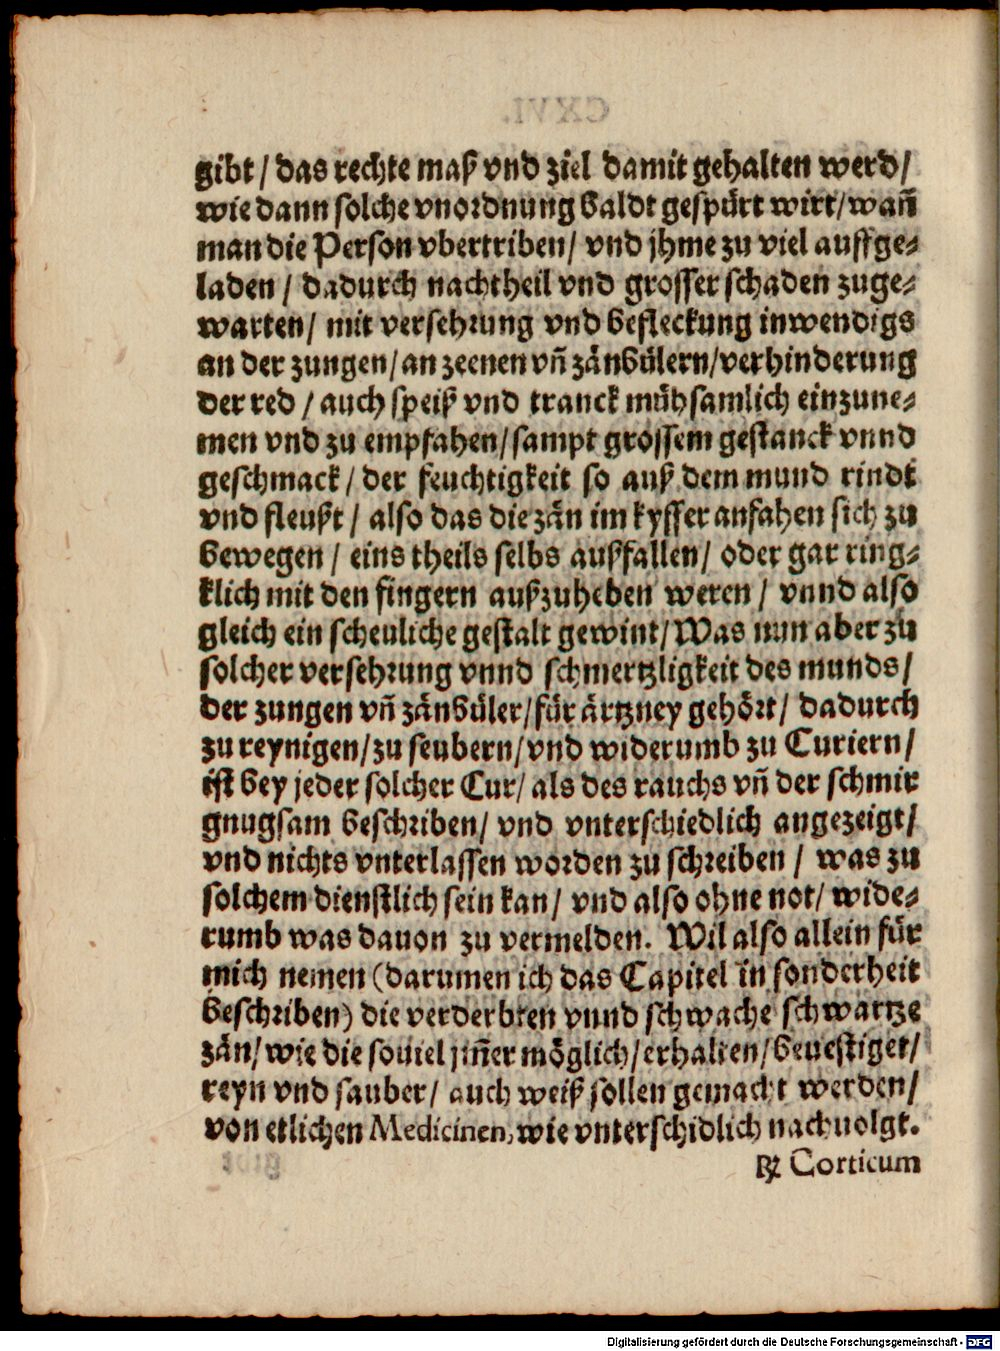 gibt / das rechte maß vnd ziel damit gehalten werd /
wie dann solche vnordnung baldt gespürt wirt / wañ
man die Person vbertriben / vnd jhme zu viel auffge⸗
laden / dadurch nachtheil vnd grosser schaden zuge⸗
warten / mit versehrung vnd befleckung inwendigs
an der zungen / an zeenen vñ zänbülern / verhinderung
der red / auch speiß vnd tranck mühsamlich einzune⸗
men vnd zu empfahen / sampt grossem gestanck vnnd
geschmack / der feuchtigkeit so auß dem mund rindt
vnd fleußt / also das die zän im kysser anfahen sich zu
bewegen / eins theils selbs außfallen / oder gar ring⸗
klich mit den fingern außzuheben weren / vnnd also
gleich ein scheuliche gestalt gewint / Was nun aber zu
solcher versehrung vnnd schmertzligkeit des munds /
der zungen vñ zänbüler / für ärtzney gehört / dadurch
zu reynigen / zu seubern / vnd widerumb zu Curiern /
ist bey jeder solcher Cur / als des rauchs vñ der schmir
gnugsam beschriben / vnd vnterschiedlich angezeigt /
vnd nichts vnterlassen worden zu schreiben / was zu
solchem dienstlich sein kan / vnd also ohne not / wide⸗
rumb was dauon zu vermelden. Wil also allein für
mich nemen (darumen ich das Capitel in sonderheit
beschriben) die verderbten vnnd schwache schwartze
zän / wie die souiel jm̃er möglich / erhalten / beuestiget /
reyn vnd sauber / auch weiß sollen gemacht werden /
von etlichen Medicinen, wie vnterschidlich nachuolgt.
℞ Corticum
Digitalisierung gefördert durch die Deutsche Forschungsgemeinschaft - DFG